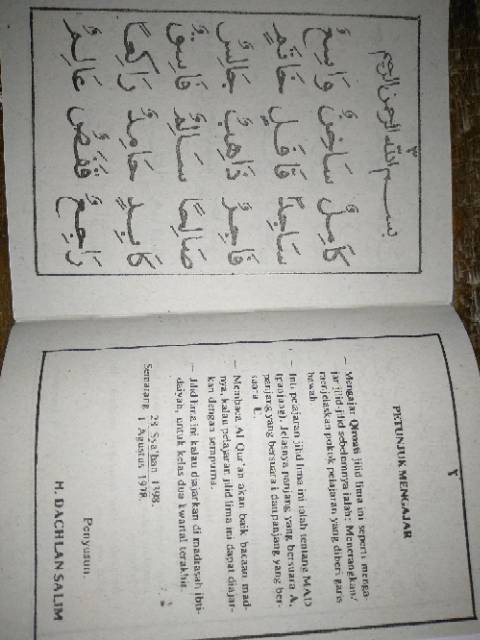 ٢
PETUNJUK MENGAJAR
— Mengajar Qiroati jilid lima ini seperti menga-
jar jilid-jilid sebelumnya ialah: Menerangkan/
menjelaskan pokok pelajaran yang diberi garis
bawah.
— Inti pelajaran jilid lima ini ialah tentang MAD
(panjang). Jelasnya panjang yang bersuara A,
panjang yang bersuara i dan panjang yang ber-
suara U.
— Membaca Al Qur'an akan baik bacaan mad-
nya, kalau pelajaran jilid lima ini dapat diajar-
kan dengan sempurna.
— Jilid lima ini kalau diajarkan di madrasah ibti-
daiyah, untuk kelas dua kwartal terakhir.
28 Sya'ban 1398.
Semarang, 1 Agustus 1978.
Penyusun,
H. DACHLAN SALIM
٣
بسم الله الرحمن الرحيم
كَامِلٌ وَاسِعٌ
سَاجِدًا خَاتِمٍ
ذَاهِبٌ جَالِسٌ
صَالِحًا سَالِمٌ فَاسِقٍ
حَامِدٌ رَاكِعًا
رَاجِعٌ قَفَصٌ عَالِمٌ